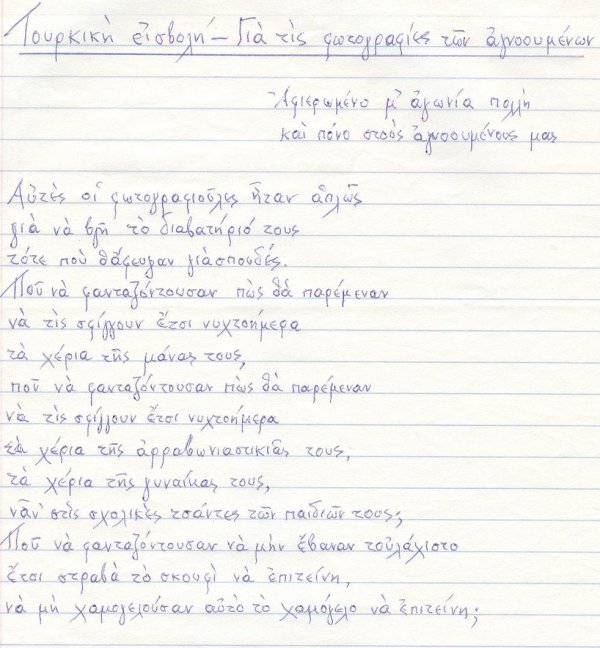 Τουρκικὴ εἰσβολή – Γιὰ τὶς φωτογραφίες τῶν ἀγνοουμένων
Ἀφιερωμένο μ' ἀγωνία πολλὴ
καὶ πόνο στοὺς ἀγνοουμένους μας
Αὐτὲς οἱ φωτογραφιοῦλες ἦταν ἁπλῶς
γιὰ νὰ βγῆ τὸ διαβατήριό τους
τότε ποὺ θἄφευγαν γιὰ σπουδές.
Ποῦ νὰ φανταζόντουσαν πὼς θὰ παρέμεναν
νὰ τὶς σφίγγουν ἔτσι νυχτοήμερα
τὰ χέρια τῆς μάνας τους,
ποῦ νὰ φανταζόντουσαν πὼς θὰ παρέμεναν
νὰ τὶς σφίγγουν ἔτσι νυχτοήμερα
τὰ χέρια τῆς ἀρραβωνιαστικιᾶς τους,
τὰ χέρια τῆς γυναίκας τους,
νἆν' στὶς σχολικὲς τσάντες τῶν παιδιῶν τους;
Ποῦ νὰ φανταζόντουσαν νὰ μὴν ἔβαναν τοὐλάχιστο
ἔτσι στραβὰ τὸ σκουφὶ νὰ ἐπιτείνη,
νὰ μὴ χαμογελοῦσαν αὐτὸ τὸ χαμόγελο νὰ ἐπιτείνη;